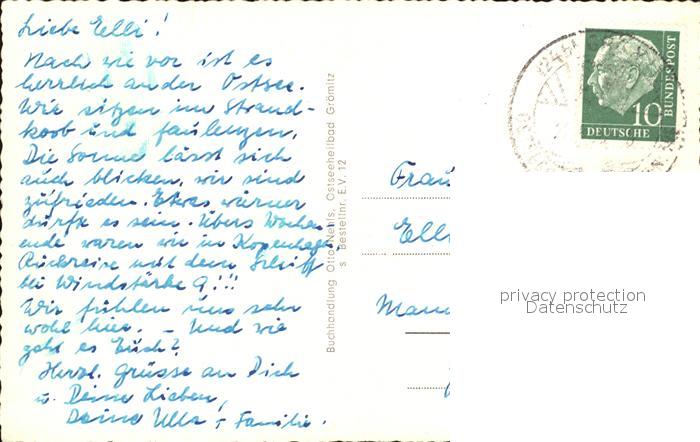 Liebe Elli!
Nach wie vor ist es
herrlich an der Ostsee.
Wir sitzen im Strand-
korb und faulenzen.
Die Sonne lässt sich
auch blicken, wir sind
zufrieden. Etwas wärmer
dürfte es sein. Übers Wochen
ende waren wir in Kopenhagen
Rückreise mit dem Schiff
bei Windstärke 9!!!
Wir fühlen uns sehr
wohl hier. – Und wie
geht es Euch?
Herzl. Grüsse an Dich
u. Deine Lieben,
Deine Ulla + Familie.
Buchhandlung Otto Nehls, Ostseeheilbad Grömitz
s Bestellnr. E.V. 12
Frau
Elli
Mann
10
DEUTSCHE
BUNDESPOST
privacy protection
Datenschutz